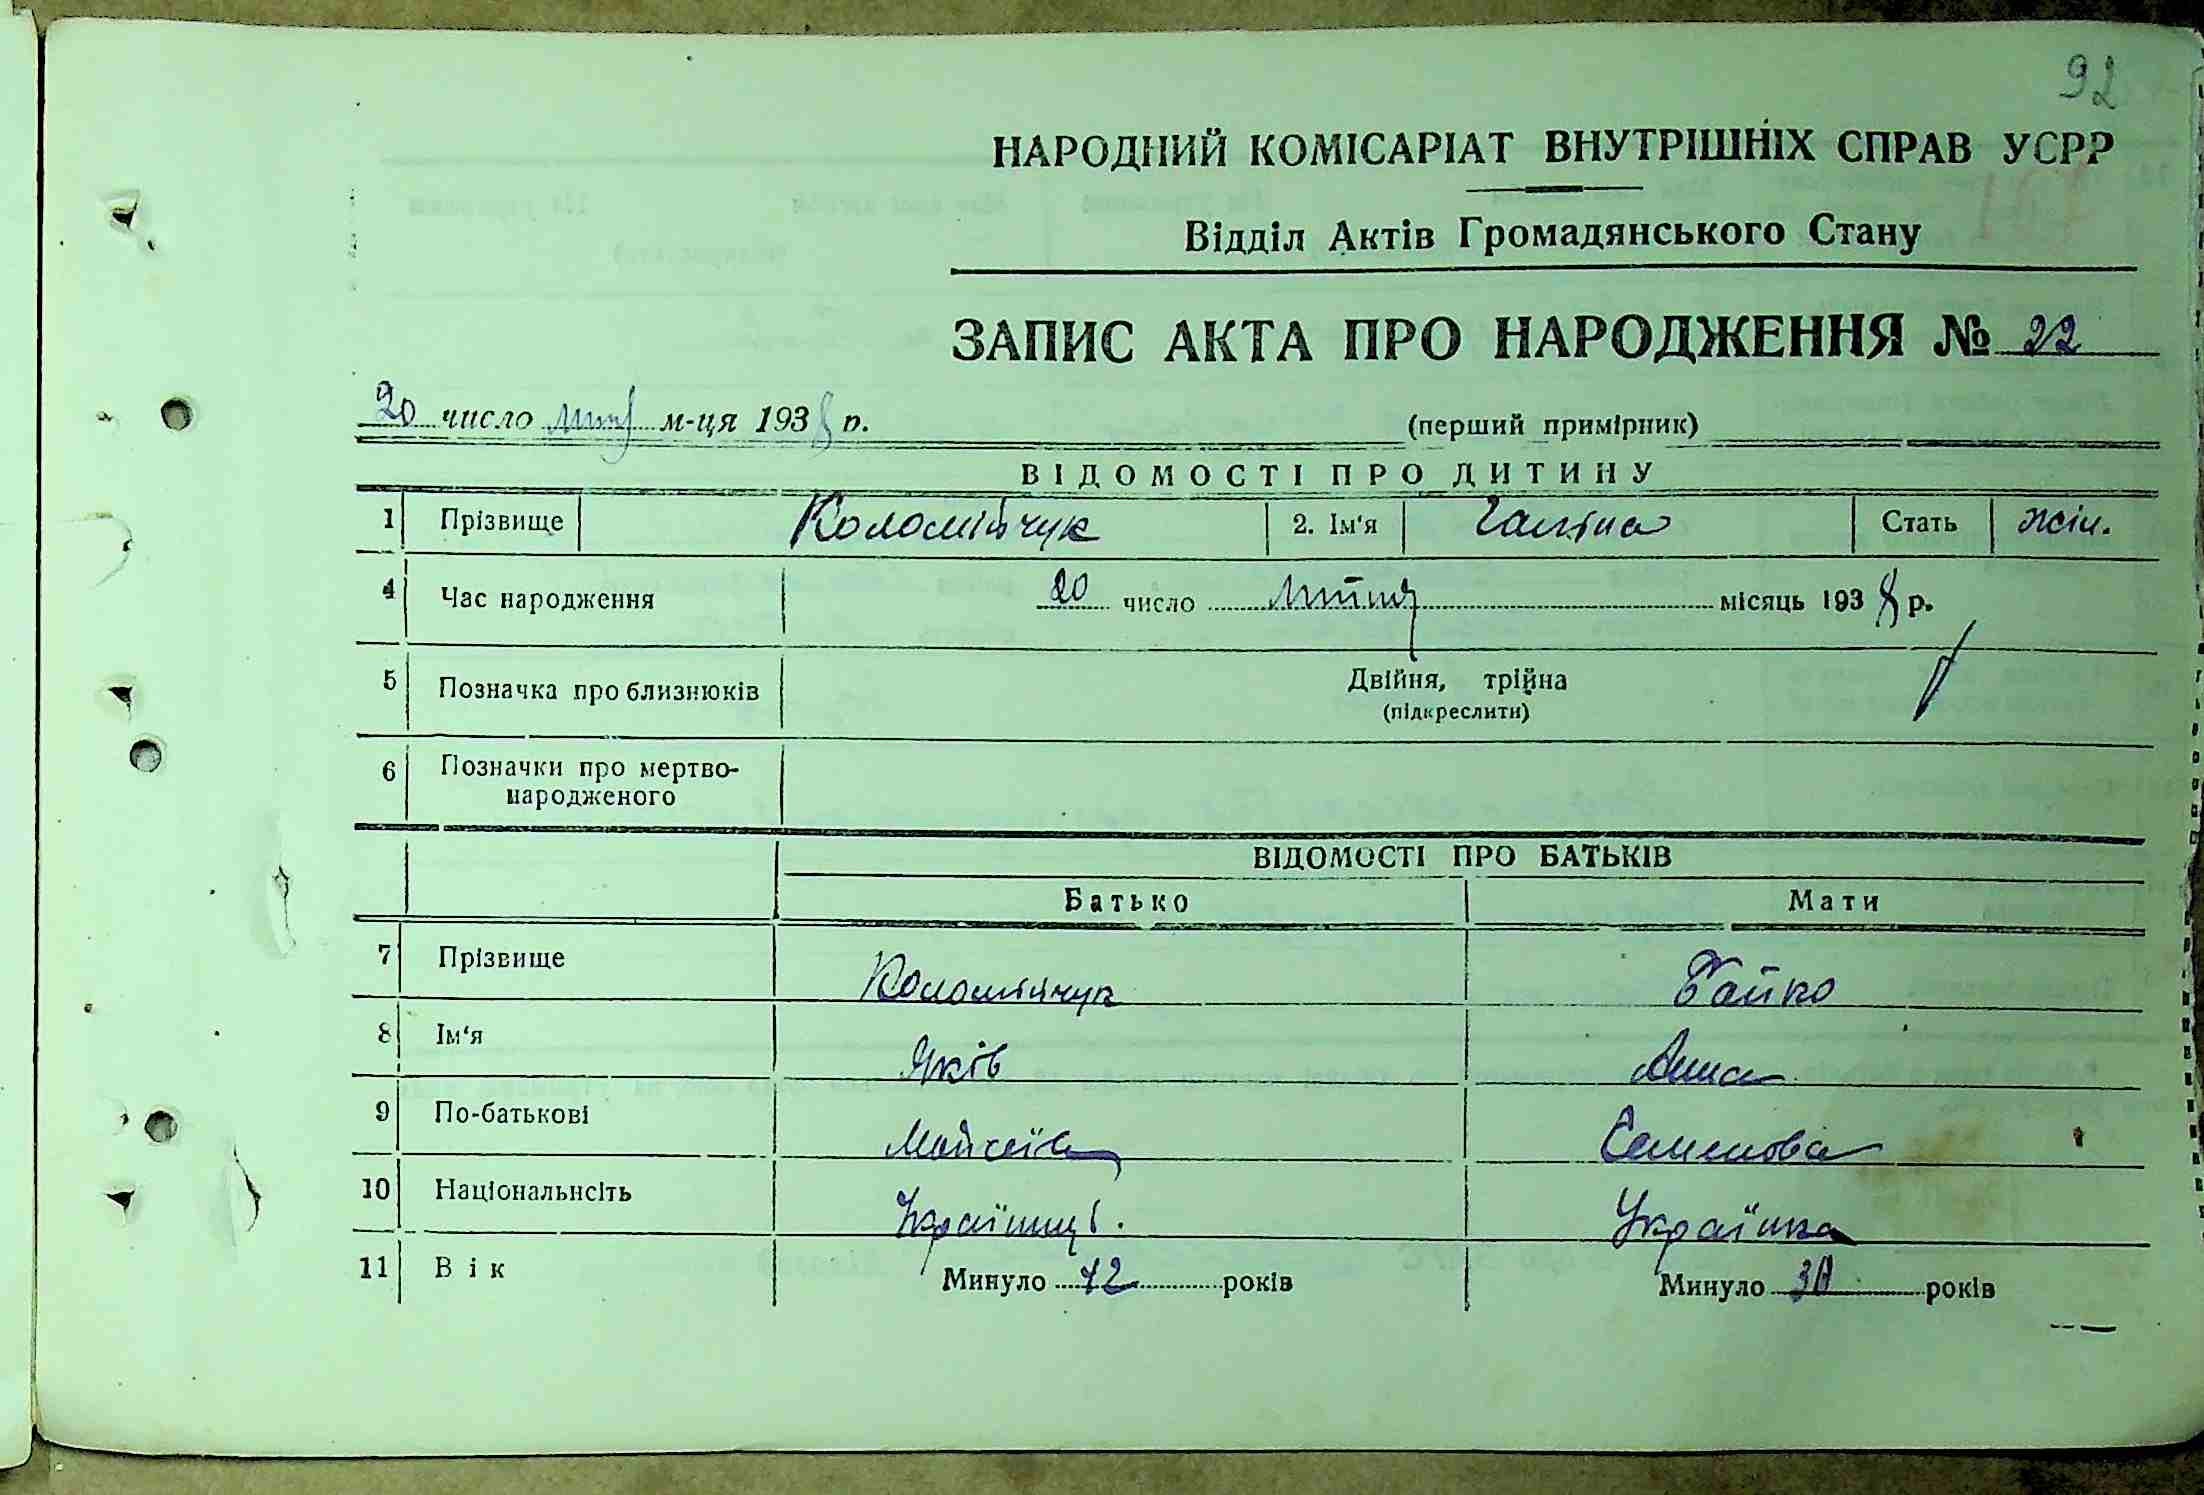 92
НАРОДНИЙ КОМІСАРІАТ ВНУТРІШНІХ СПРАВ УСРР
Відділ Актів Громадянського Стану
ЗАПИС АКТА ПРО НАРОДЖЕННЯ № 22
20 число лют м-ця 1938 р. (перший примірник)
ВІДОМОСТІ ПРО ДИТИНУ
1 Прізвище Коломійчук 2. Ім'я Галіна Стать жін.
4 Час народження 20 число місяць 1938 р.
5 Позначка про близнюків Двійня, трійня
(підкреслити)
6 Позначки про мертво-
народженого
ВІДОМОСТІ ПРО БАТЬКІВ
Батько Мати
7 Прізвище Коломійчук Бойко
8 Ім'я Яків Анна
9 По-батькові Мойсеїв Семенова
10 Національнсіть Українці. Українка
11 Вік Минуло 42 років Минуло 30 років